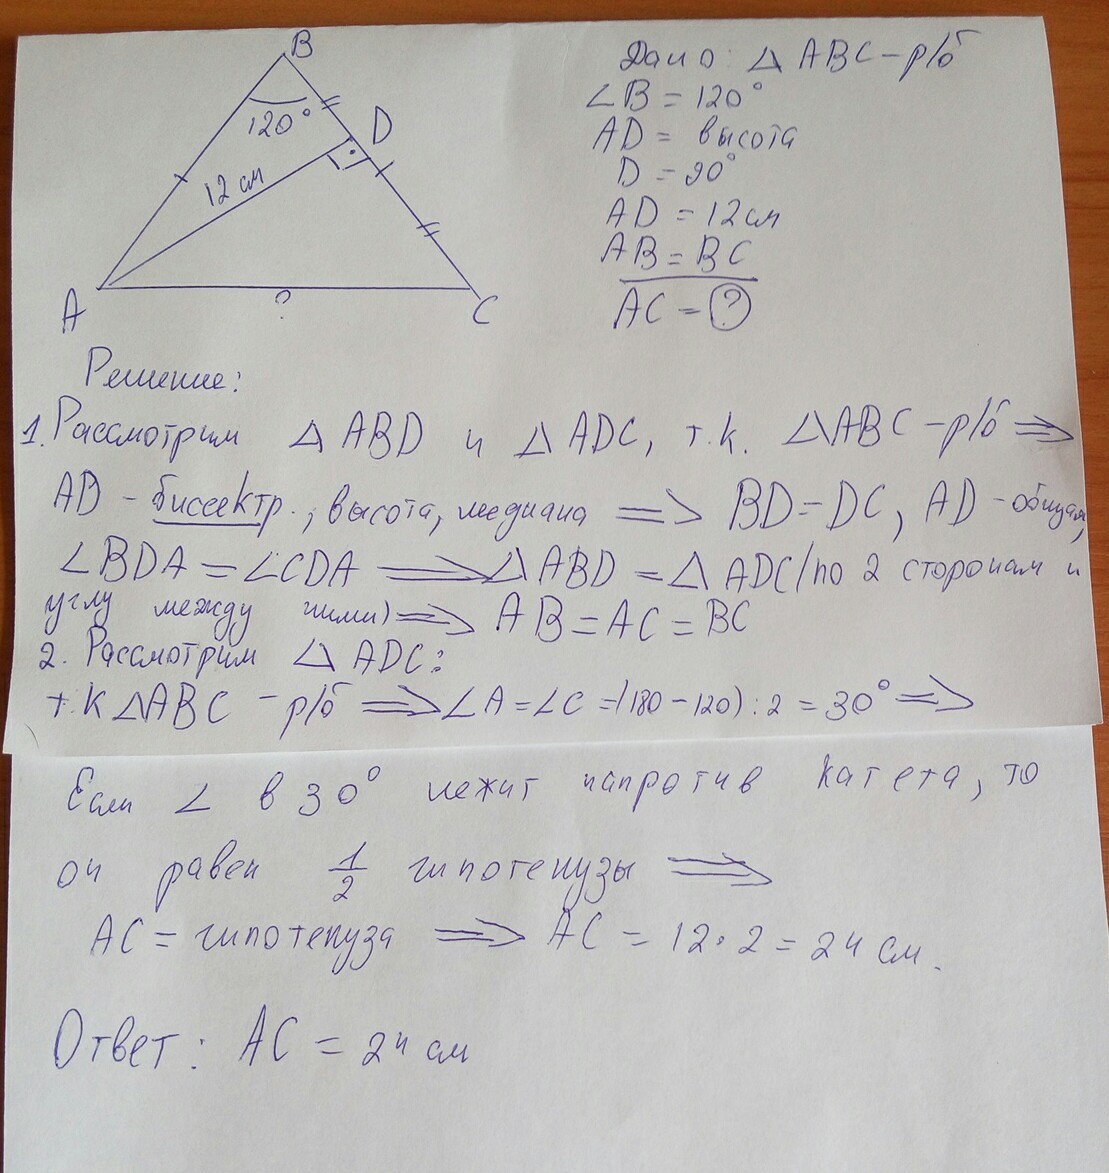 B
120°
D
12 см
A
?
C
Дано: △ ABC - р/б
∠B = 120°
AD = высота
D = 90°
AD = 12 см
AB = BC
AC = ?
Решение:
1. Рассмотрим △ ABD и △ ADC, т.к. △ABC - р/б ⟹
AD - биссектр., высота, медиана ⟹ BD = DC, AD - общая,
∠BDA = ∠CDA ⟹ △ ABD = △ ADC (по 2 сторонам и
углу между ними) ⟹ AB = AC = BC
2. Рассмотрим △ ADC:
т.к △ABC - р/б ⟹ ∠A = ∠C = (180 - 120) : 2 = 30° ⟹
Если ∠ в 30° лежит напротив катета, то
он равен 1/2 гипотенузы ⟹
AC = гипотенуза ⟹ AC = 12 · 2 = 24 см.
Ответ: AC = 24 см